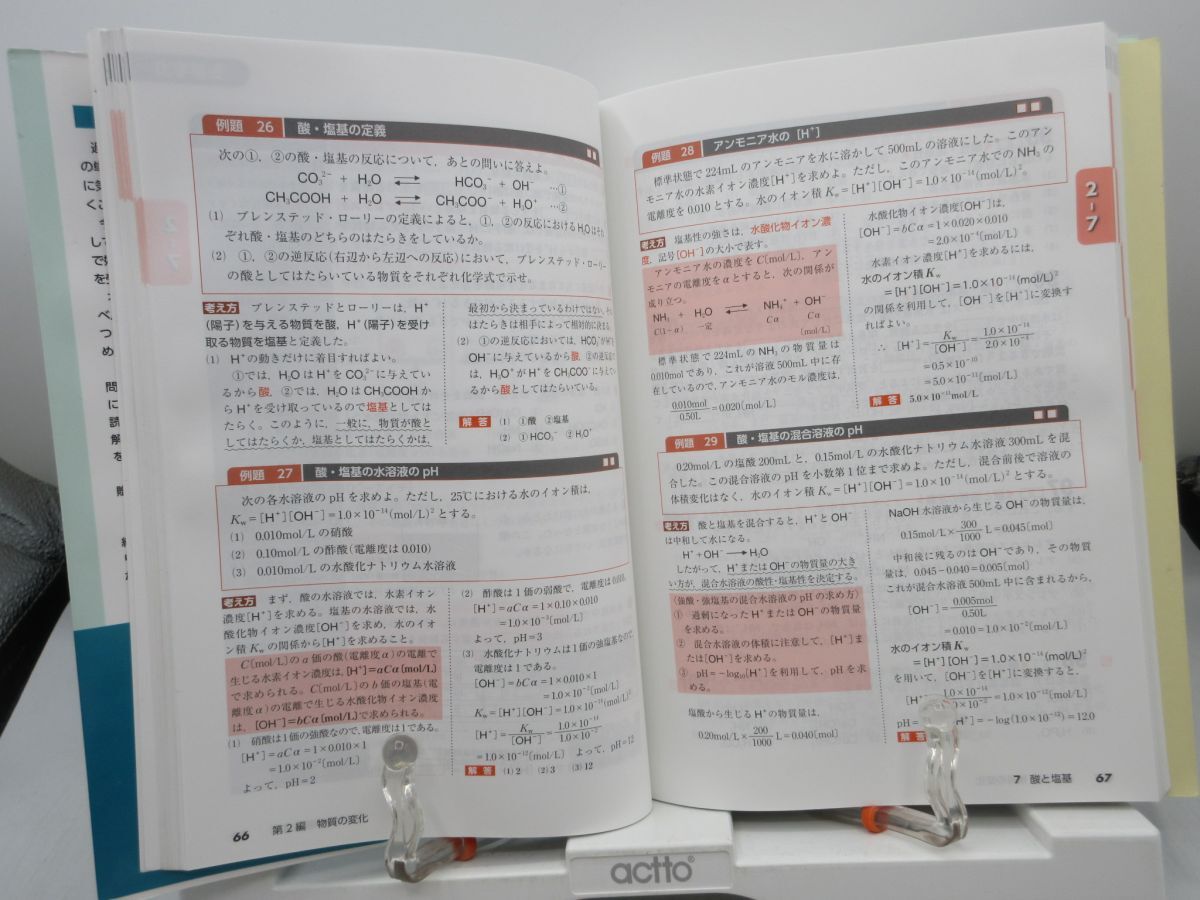 例題 26 酸・塩基の定義
次の①，②の酸・塩基の反応について，あとの問いに答えよ。
CO₃²⁻ + H₂O ⇄ HCO₃⁻ + OH⁻ …①
CH₃COOH + H₂O ⇄ CH₃COO⁻ + H₃O⁺ …②
(1) ブレンステッド・ローリーの定義によると，①，②の反応におけるH₂Oはそれ
ぞれ酸・塩基のどちらのはたらきをしているか。
(2) ①，②の逆反応(右辺から左辺への反応)において，ブレンステッド・ローリー
の酸としてはたらいている物質をそれぞれ化学式で示せ。
考え方 ブレンステッドとローリーは，H⁺
(陽子)を与える物質を酸，H⁺(陽子)を受け
取る物質を塩基と定義した。
(1) H⁺の動きだけに着目すればよい。
①では，H₂OはH⁺をCO₃²⁻に与えてい
るから酸，②では，H₂OはCH₃COOHか
らH⁺を受け取っているので塩基としては
たらく。このように，一般に，物質が酸と
してはたらくか，塩基としてはたらくかは，
最初から決まっているわけではない。その
はたらきは相手によって相対的に決まる。
(2) ①の逆反応においては，HCO₃⁻がH⁺を
OH⁻に与えているから酸，②の逆反応で
は，H₃O⁺がH⁺をCH₃COO⁻に与えてい
るから酸としてはたらいている。
解答 (1) ①酸 ②塩基
(2) ①HCO₃⁻ ②H₃O⁺
例題 27 酸・塩基の水溶液のpH
次の各水溶液のpHを求めよ。ただし，25℃における水のイオン積は，
Kw=[H⁺][OH⁻]=1.0×10⁻¹⁴(mol/L)²とする。
(1) 0.010mol/Lの硝酸
(2) 0.10mol/Lの酢酸(電離度は0.010)
(3) 0.010mol/Lの水酸化ナトリウム水溶液
考え方 まず，酸の水溶液では，水素イオン
濃度[H⁺]を求める。塩基の水溶液では，水
酸化物イオン濃度[OH⁻]を求め，水のイオ
ン積Kwの関係から[H⁺]を求めること。
C[mol/L]のa価の酸(電離度α)の電離で
生じる水素イオン濃度は，[H⁺]=aCα[mol/L]
で求められる。C[mol/L]のb価の塩基(電
離度α)の電離で生じる水酸化物イオン濃度
は，[OH⁻]=bCα[mol/L]で求められる。
(1) 硝酸は1価の強酸なので，電離度は1である。
[H⁺]=aCα=1×0.010×1
=1.0×10⁻²[mol/L]
よって，pH=2
(2) 酢酸は1価の弱酸で，電離度は0.010。
[H⁺]=aCα=1×0.10×0.010
=1.0×10⁻³[mol/L]
よって，pH=3
(3) 水酸化ナトリウムは1価の強塩基なので，
電離度は1である。
[OH⁻]=bCα=1×0.010×1
=1.0×10⁻²[mol/L]
Kw=[H⁺][OH⁻]=1.0×10⁻¹⁴(mol/L)²
[H⁺]=Kw/[OH⁻]=1.0×10⁻¹⁴/1.0×10⁻²
=1.0×10⁻¹²[mol/L] よって，pH=12
解答 (1) 2 (2) 3 (3) 12
66 第2編 物質の変化
例題 28 アンモニア水の[H⁺]
標準状態で224mLのアンモニアを水に溶かして500mLの溶液にした。このアン
モニア水の水素イオン濃度[H⁺]を求めよ。ただし，このアンモニア水でのNH₃の
電離度を0.010とする。水のイオン積Kw=[H⁺][OH⁻]=1.0×10⁻¹⁴(mol/L)²。
考え方 塩基性の強さは，水酸化物イオン濃
度，記号[OH⁻]の大小で表す。
アンモニア水の濃度をC[mol/L]，アン
モニアの電離度をαとすると，次の関係が
成り立つ。
NH₃ + H₂O ⇄ NH₄⁺ + OH⁻
C(1−α) 一定 Cα Cα
[mol/L]
標準状態で224mLのNH₃の物質量は
0.010molであり，これが溶液500mL中に存
在しているので，アンモニア水のモル濃度は，
0.010mol/0.50L=0.020[mol/L]
水酸化物イオン濃度[OH⁻]は，
[OH⁻]=bCα=1×0.020×0.010
=2.0×10⁻⁴[mol/L]
水素イオン濃度[H⁺]を求めるには，
水のイオン積Kw
=[H⁺][OH⁻]=1.0×10⁻¹⁴(mol/L)²
の関係を利用して，[OH⁻]を[H⁺]に変換す
ればよい。
∴ [H⁺]=Kw/[OH⁻]=1.0×10⁻¹⁴/2.0×10⁻⁴
=0.5×10⁻¹⁰
=5.0×10⁻¹¹[mol/L]
解答 5.0×10⁻¹¹mol/L
例題 29 酸・塩基の混合溶液のpH
0.20mol/Lの塩酸200mLと，0.15mol/Lの水酸化ナトリウム水溶液300mLを混
合した。この混合溶液のpHを小数第1位まで求めよ。ただし，混合前後で溶液の
体積変化はなく，水のイオン積Kw=[H⁺][OH⁻]=1.0×10⁻¹⁴(mol/L)²とする。
考え方 酸と塩基を混合すると，H⁺とOH⁻
は中和して水になる。
H⁺+OH⁻→H₂O
したがって，H⁺またはOH⁻の物質量の大き
い方が，混合水溶液の酸性・塩基性を決定する。
(強酸・強塩基の混合水溶液のpHの求め方)
① 過剰になったH⁺またはOH⁻の物質量
を求める。
② 混合水溶液の体積に注意して，[H⁺]ま
たは[OH⁻]を求める。
③ pH=−log₁₀[H⁺]を利用して，pHを求
める。
塩酸から生じるH⁺の物質量は，
0.20mol/L×200/1000L=0.040[mol]
NaOH水溶液から生じるOH⁻の物質量は，
0.15mol/L×300/1000L=0.045[mol]
中和後に残るのはOH⁻であり，その物質
量は，0.045−0.040=0.005[mol]
これが混合水溶液500mL中に含まれるから，
[OH⁻]=0.005mol/0.50L
=0.010=1.0×10⁻²[mol/L]
水のイオン積Kw
=[H⁺][OH⁻]=1.0×10⁻¹⁴(mol/L)²
を用いて，[OH⁻]を[H⁺]に変換すると，
[H⁺]=1.0×10⁻¹⁴/1.0×10⁻²=1.0×10⁻¹²[mol/L]
pH= H⁺]=−log(1.0×10⁻¹²)=12.0
解答
7 酸と塩基 67
2-7
actto